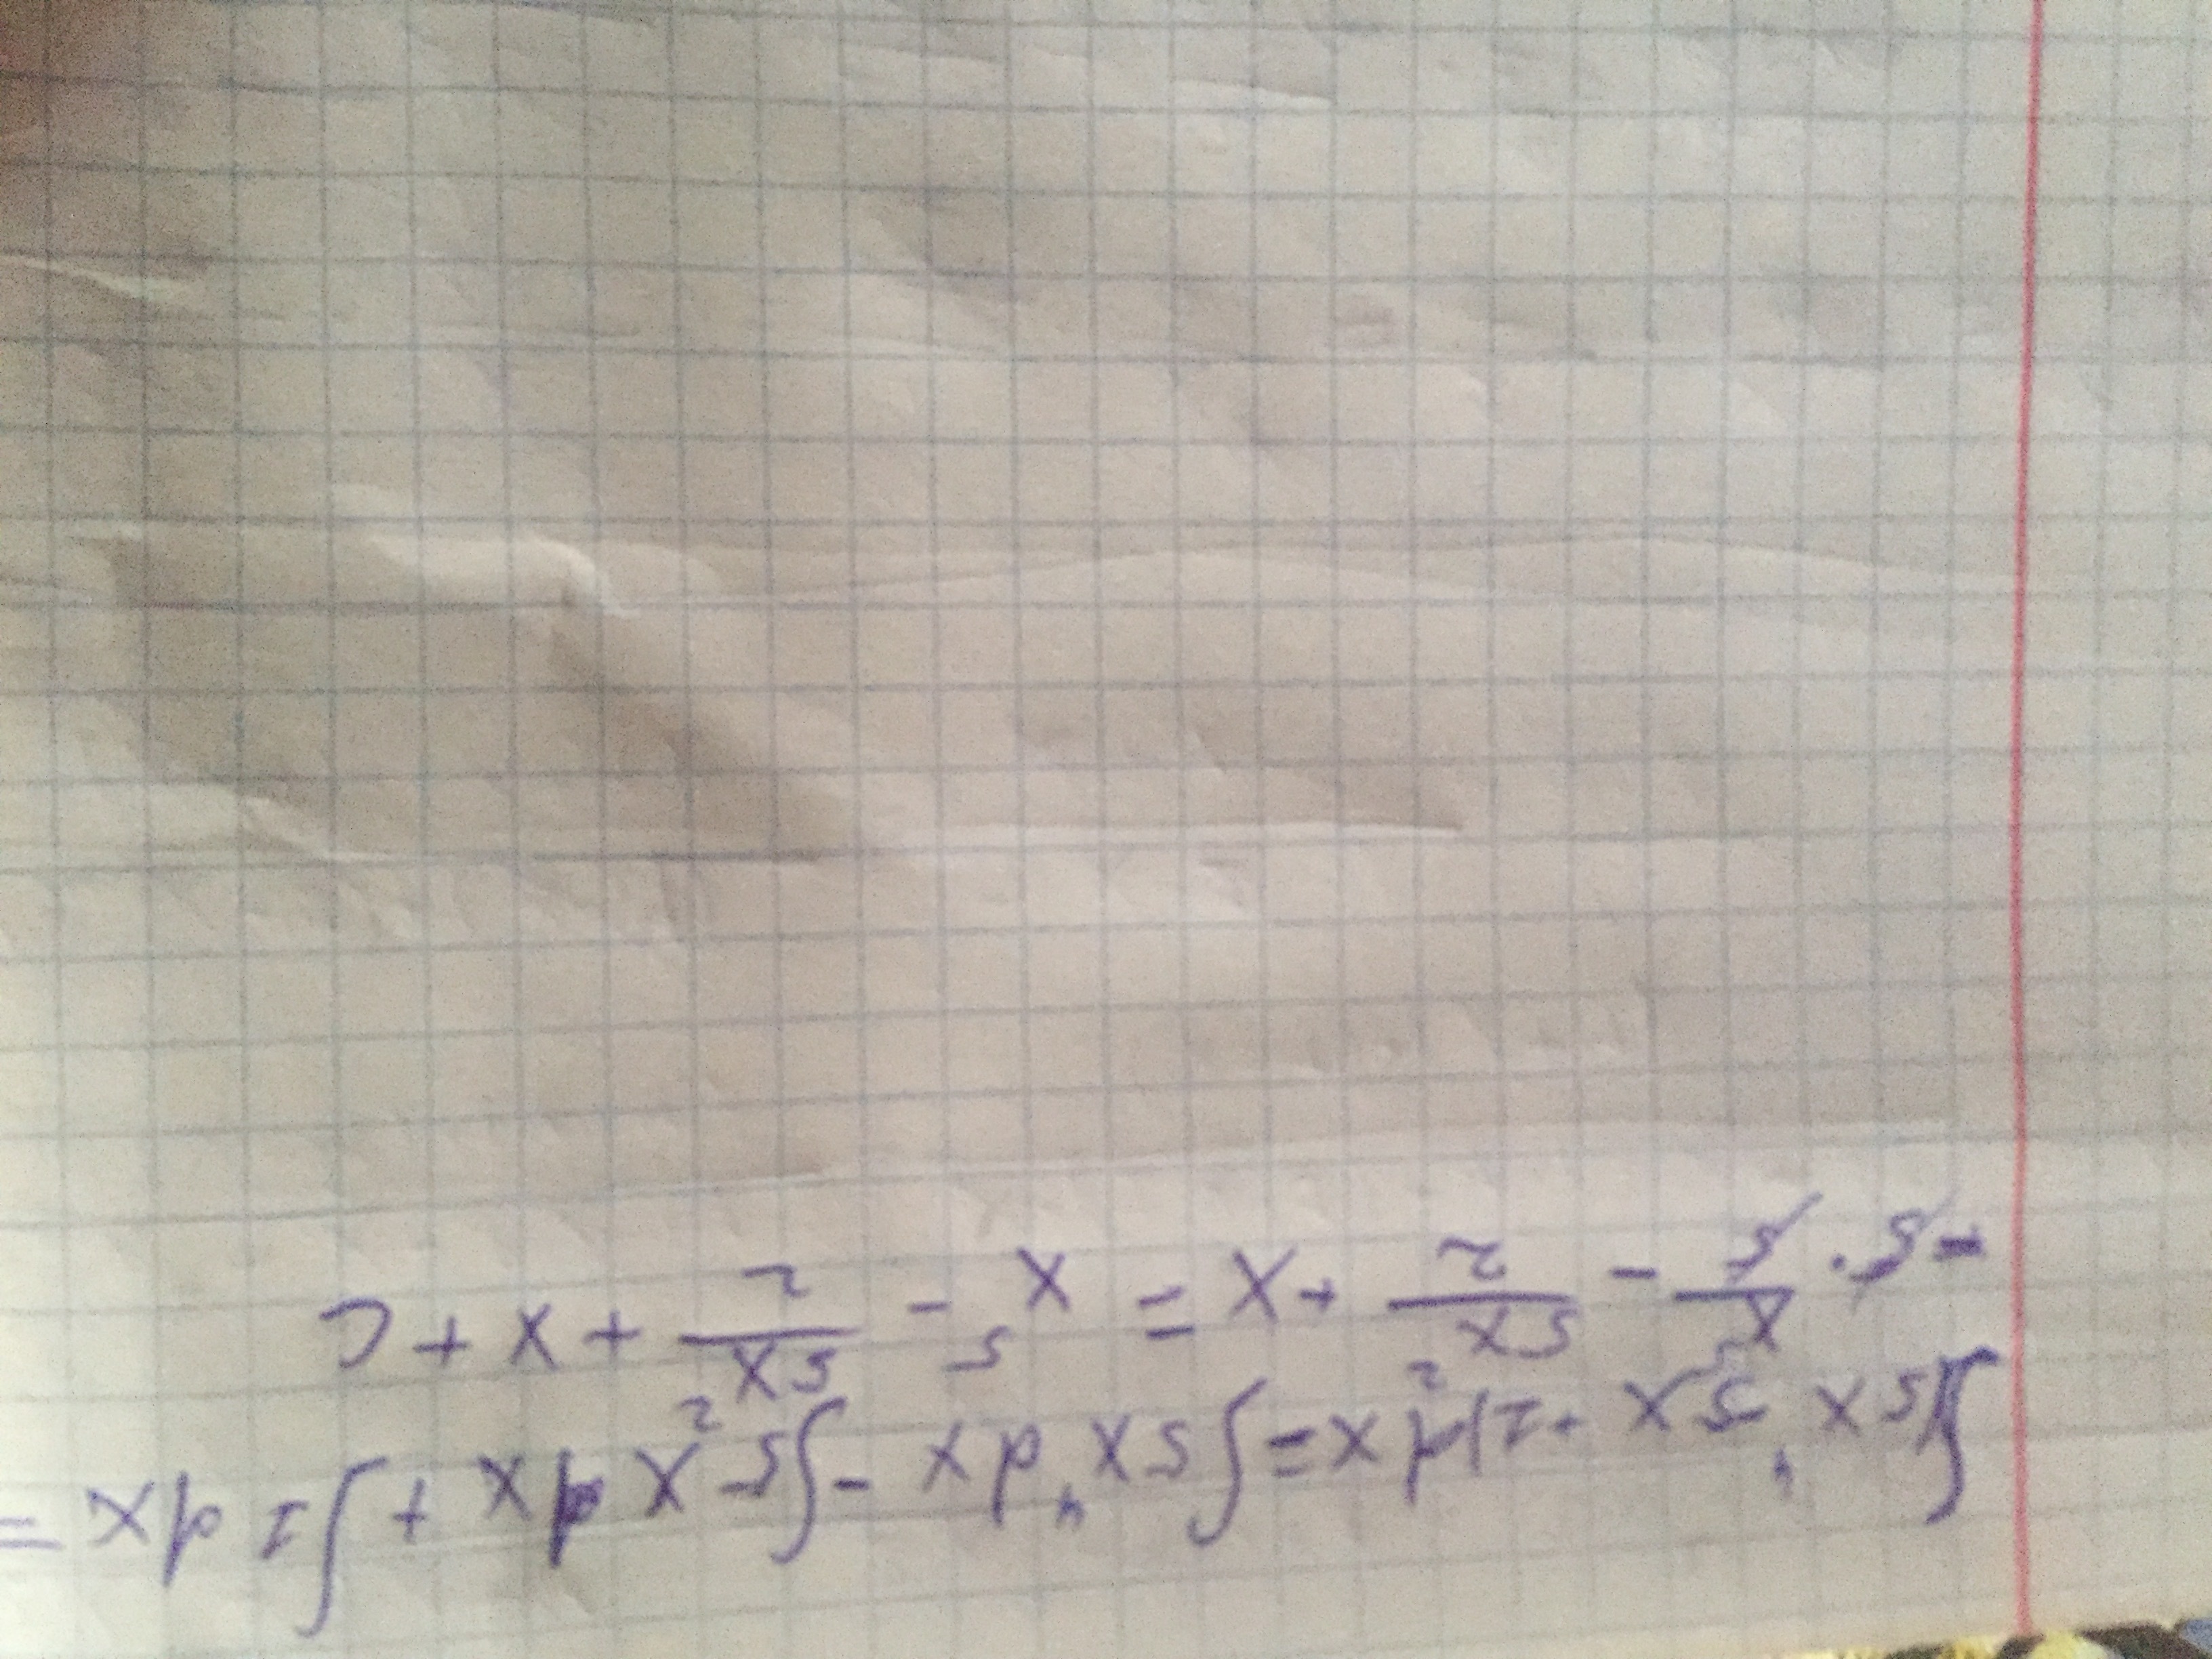 ∫(5x⁴-5x+1)dx=∫5x⁴dx-∫5xdx+∫1dx=
=5·x⁵/5-5x²/2+x=x⁵-5x²/2+x+c